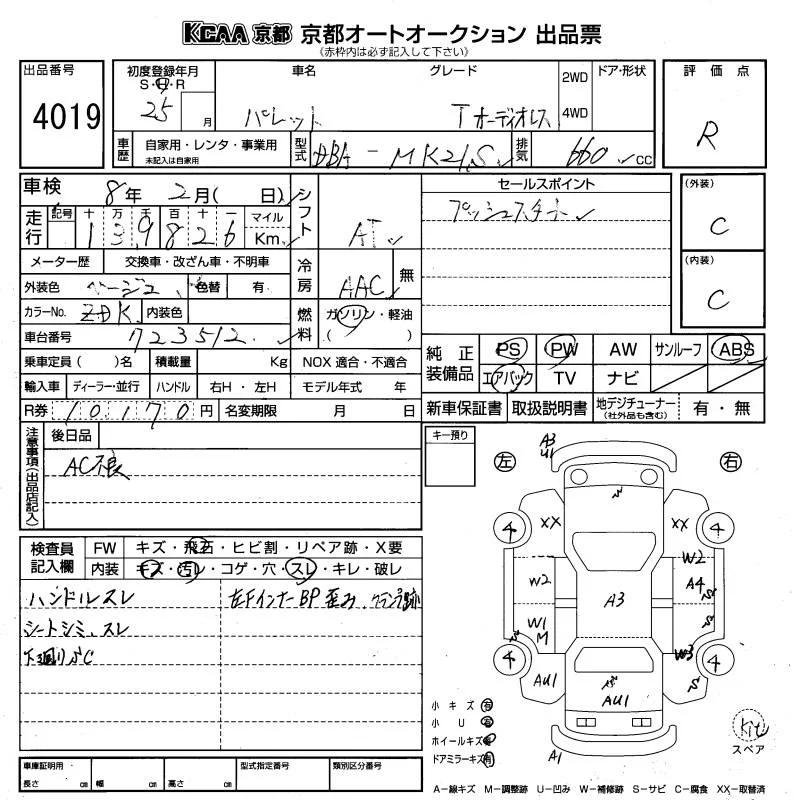 KCAA 京都 京都オートオークション 出品票
(赤枠内は必ず記入して下さい)
出品番号 4019
初度登録年月 S・H・R 25 月
車名 パレット
グレード T オーディオレス
2WD 4WD
ドア・形状
評価点 R
車歴 自家用・レンタ・事業用 未記入は自家用
型式 DBA-MK21S
排気 660 CC
車検 8年 2月( 日)
シフト AT
セールスポイント
プッシュスタート
(外装) C
(内装) C
走行 記号 十 万 千 百 十 一 マイル Km
139826
メーター歴 交換車・改ざん車・不明車
冷房 AAC 無
外装色 ベージュ 色替 有
カラーNo. ZDK 内装色
燃料 ガソリン・軽油 ( )
車台番号 723512
純正装備品 PS PW AW サンルーフ ABS
エアバック TV ナビ
乗車定員( )名 積載量 Kg NOX 適合・不適合
輸入車 ディーラー・並行 ハンドル 右H・左H モデル年式 年
新車保証書 取扱説明書 地デジチューナー(社外品も含む) 有・無
R券 10170円 名変期限 月 日
注意事項(出品店記入) 後日品
AC不良
キー預り
左 右
検査員記入欄 FW キズ・飛石・ヒビ割・リペア跡・X要
内装 キズ・汚レ・コゲ・穴・スレ・キレ・破レ
ハンドルスレ
左Fインナー BP歪み、クランプ跡
シートシミ、スレ
下廻りサC
A3
U1
4 XX XX 4
W2
W2 A4
A3
W1
M
W3
4 4
AU1 AU1
A1
小キズ 有
小U 有
ホイールキズ 有
ドアミラーキズ 有
Kit
スペア
車庫証明用 長さ cm 幅 cm 高さ cm
型式指定番号 類別区分番号
A-線キズ M-調整跡 U-凹み W-補修跡 S-サビ C-腐食 XX-取替済